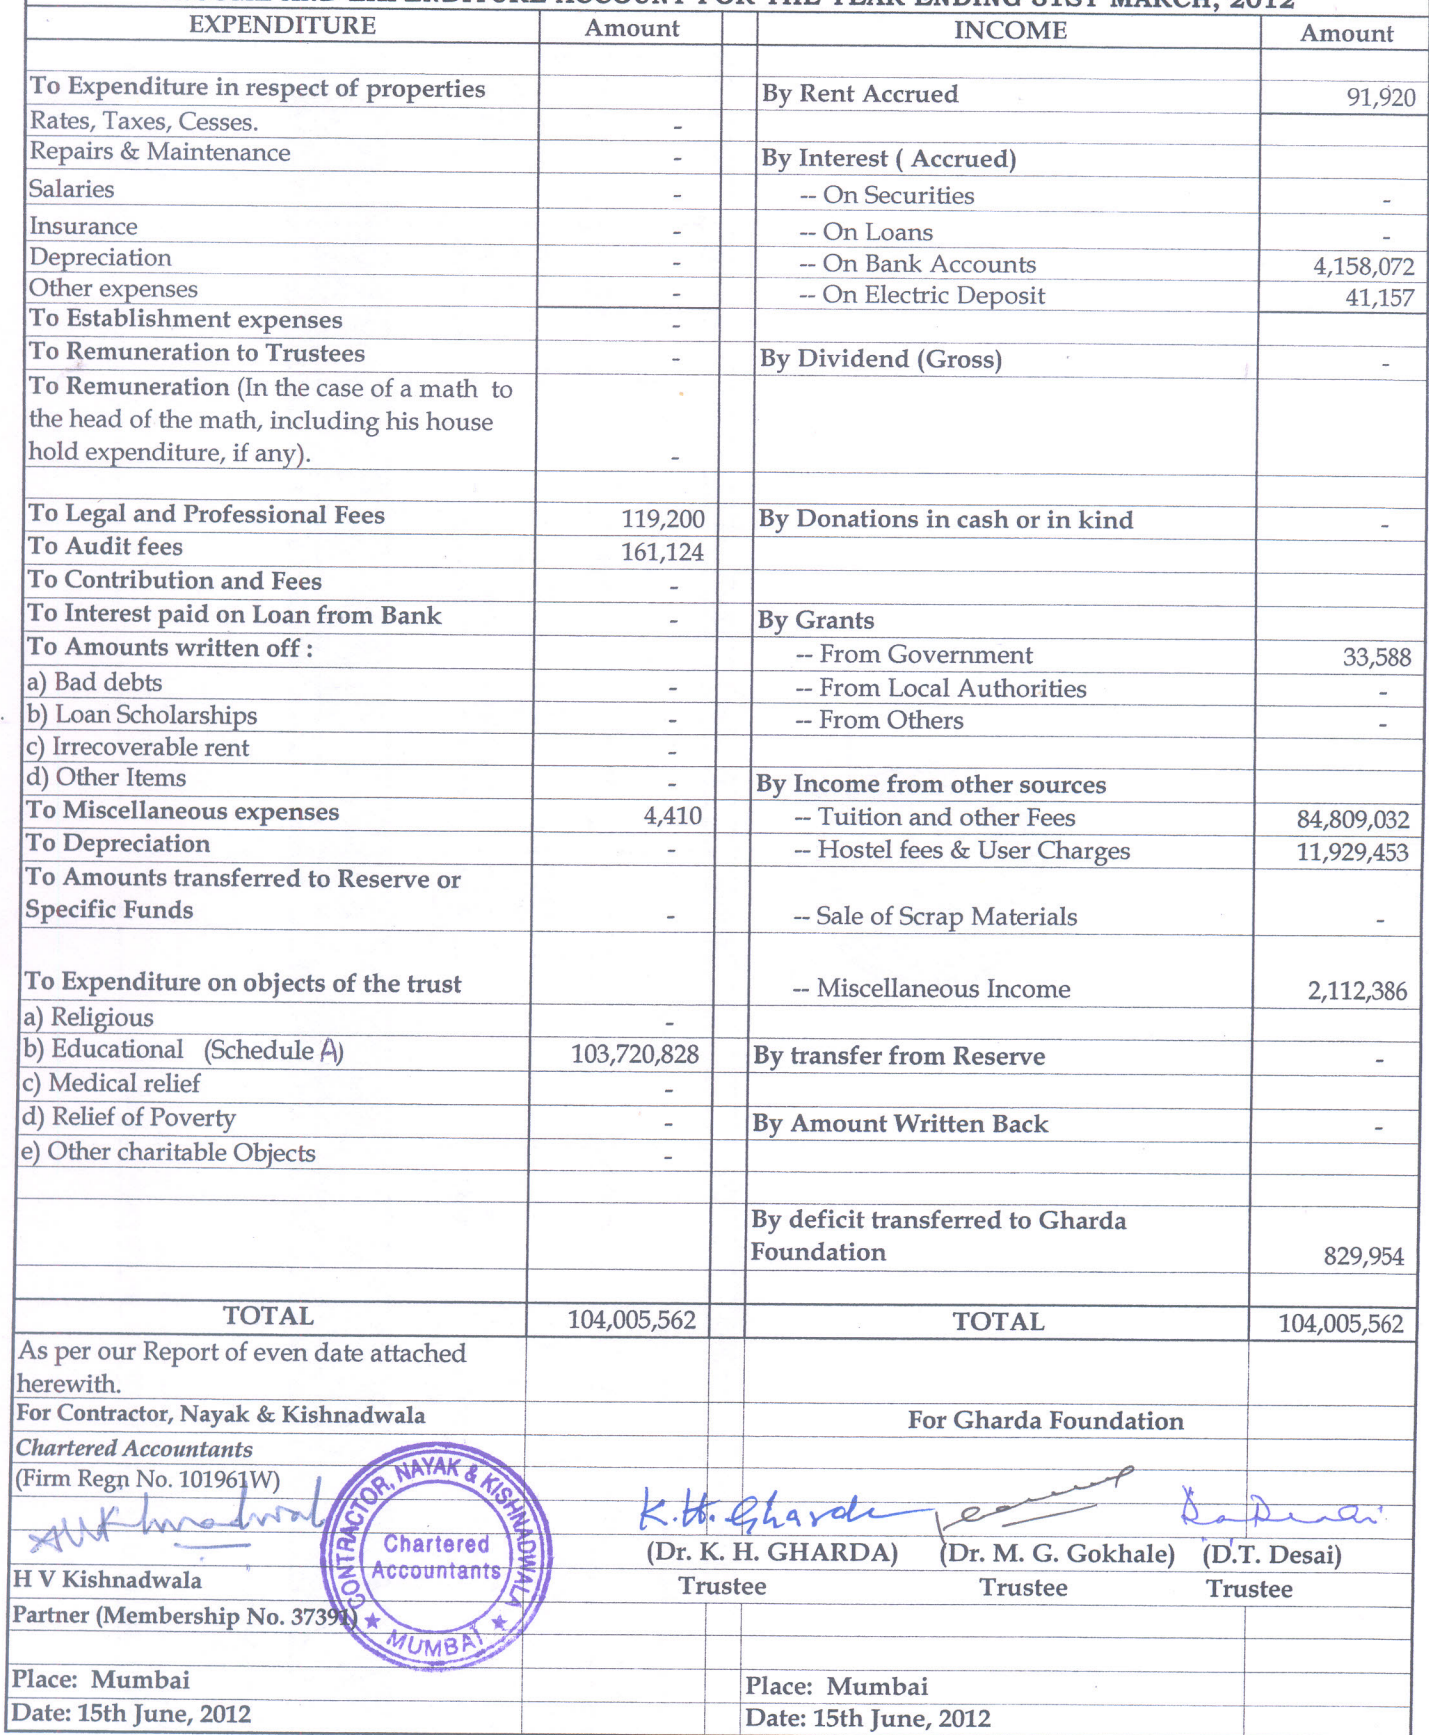 INCOME AND EXPENDITURE ACCOUNT FOR THE YEAR ENDING 31ST MARCH, 2012
EXPENDITURE Amount INCOME Amount
To Expenditure in respect of properties By Rent Accrued 91,920
Rates, Taxes, Cesses. -
Repairs & Maintenance - By Interest ( Accrued)
Salaries - -- On Securities -
Insurance - -- On Loans -
Depreciation - -- On Bank Accounts 4,158,072
Other expenses - -- On Electric Deposit 41,157
To Establishment expenses -
To Remuneration to Trustees - By Dividend (Gross) -
To Remuneration (In the case of a math to
the head of the math, including his house
hold expenditure, if any). -
To Legal and Professional Fees 119,200 By Donations in cash or in kind -
To Audit fees 161,124
To Contribution and Fees -
To Interest paid on Loan from Bank - By Grants
To Amounts written off : -- From Government 33,588
a) Bad debts - -- From Local Authorities -
b) Loan Scholarships - -- From Others -
c) Irrecoverable rent -
d) Other Items - By Income from other sources
To Miscellaneous expenses 4,410 -- Tuition and other Fees 84,809,032
To Depreciation - -- Hostel fees & User Charges 11,929,453
To Amounts transferred to Reserve or
Specific Funds - -- Sale of Scrap Materials -
To Expenditure on objects of the trust -- Miscellaneous Income 2,112,386
a) Religious -
b) Educational (Schedule A) 103,720,828 By transfer from Reserve -
c) Medical relief -
d) Relief of Poverty - By Amount Written Back -
e) Other charitable Objects -
By deficit transferred to Gharda
Foundation 829,954
TOTAL 104,005,562 TOTAL 104,005,562
As per our Report of even date attached
herewith.
For Contractor, Nayak & Kishnadwala For Gharda Foundation
Chartered Accountants
(Firm Regn No. 101961W)
CONTRACTOR, NAYAK & KISHNADWALA
Chartered
Accountants
★ MUMBAI ★
K. H. Gharda
(Dr. K. H. GHARDA) (Dr. M. G. Gokhale) (D.T. Desai)
H V Kishnadwala Trustee Trustee Trustee
Partner (Membership No. 37391)
Place: Mumbai Place: Mumbai
Date: 15th June, 2012 Date: 15th June, 2012